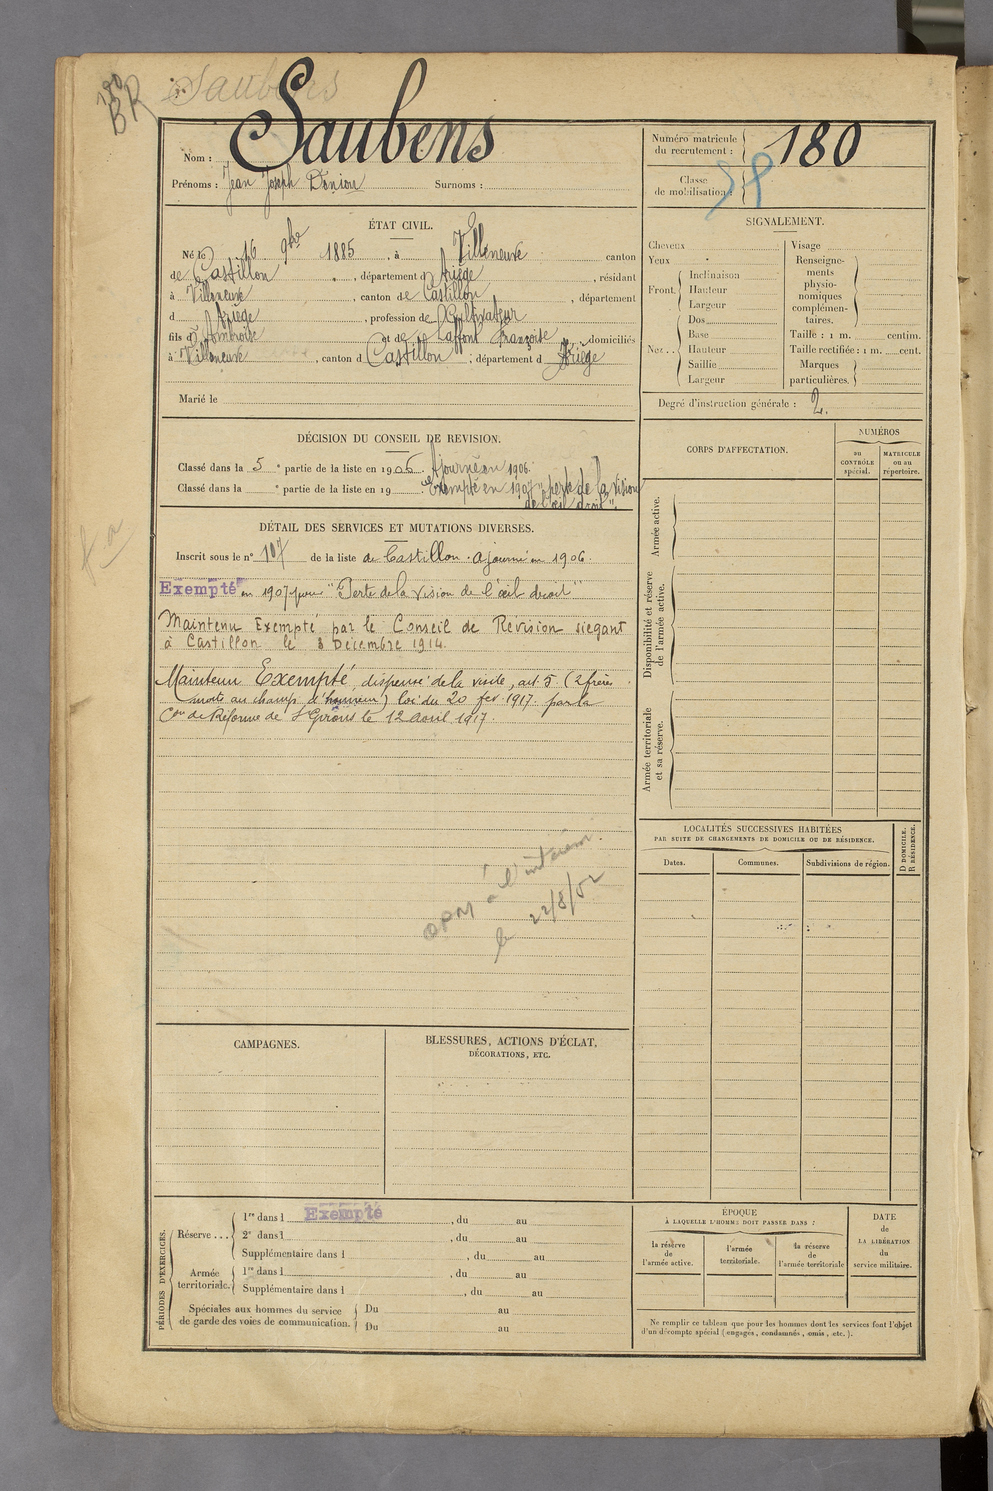 180
BR
Saubens
Nom : Saubens
Prénoms : Jean Joseph Surnoms :
Numéro matricule
du recrutement : 180
Classe
de mobilisation :
ÉTAT CIVIL.
Né le 16 9bre 1885, à Villeneuve canton
de Castillon, département d Ariège, résidant
à Villeneuve, canton de Castillon, département
d Ariège, profession de Cultivateur
fils d' Ambroise et de Laffont Françoise, domiciliés
à Villeneuve, canton d Castillon, département d Ariège
Marié le
SIGNALEMENT.
Cheveux
Yeux
Front. Inclinaison
Hauteur
Largeur
Nez .. Dos
Base
Hauteur
Saillie
Largeur
Visage
Renseigne-
ments
physio-
nomiques
complémen-
taires.
Taille : 1 m. centim.
Taille rectifiée : 1 m. cent.
Marques
particulières.
Degré d'instruction générale : 2.
DÉCISION DU CONSEIL DE REVISION.
Classé dans la 5 e partie de la liste en 1906. Ajourné en 1906.
Classé dans la e partie de la liste en 19 Exempté en 1907 "perte de la vision
de l'œil droit".
DÉTAIL DES SERVICES ET MUTATIONS DIVERSES.
Inscrit sous le n° 107 de la liste de Castillon. Ajourné en 1906.
Exempté en 1907 pour "Perte de la vision de l'œil droit"
Maintenu Exempté par le Conseil de Revision siegant
à Castillon le 8 Décembre 1914.
Maintenu Exempté dispensé de la visite, art. 5 (2 frères
morts au champ d'honneur) loi du 20 fev. 1917. par la
Con de Réforme de St Girons le 12 avril 1917.
à l'intérieur.
le 22/8/52
CORPS D'AFFECTATION.
NUMÉROS
AU
CONTRÔLE
spécial.
MATRICULE
ou au
répertoire.
Armée active.
Disponibilité et réserve
de l'armée active.
Armée territoriale
et sa réserve.
LOCALITÉS SUCCESSIVES HABITÉES
PAR SUITE DE CHANGEMENTS DE DOMICILE OU DE RÉSIDENCE.
Dates.
Communes.
Subdivisions de région.
D DOMICILE.
R RÉSIDENCE.
CAMPAGNES.
BLESSURES, ACTIONS D'ÉCLAT,
DÉCORATIONS, ETC.
PÉRIODES D'EXERCICES.
Réserve ... 1re dans l Exempté, du au
2e dans l, du au
Supplémentaire dans l, du au
Armée
territoriale. 1re dans l, du au
Supplémentaire dans l, du au
Spéciales aux hommes du service
de garde des voies de communication.
Du au
Du au
ÉPOQUE
À LAQUELLE L'HOMME DOIT PASSER DANS :
la réserve
de
l'armée active.
l'armée
territoriale.
la réserve
de
l'armée territoriale
DATE
de
LA LIBÉRATION
du
service militaire.
Ne remplir ce tableau que pour les hommes dont les services font l'objet
d'un décompte spécial (engagés, condamnés, omis, etc.).